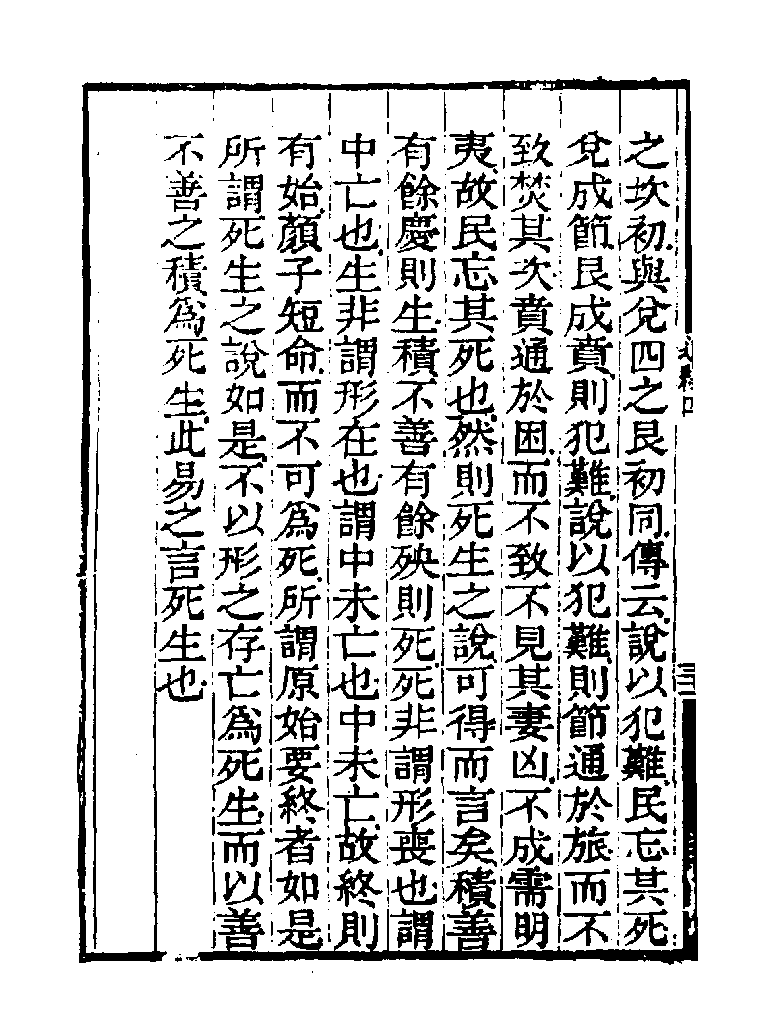 之坎初與兌四之艮初同傳云說以犯難民忘其死
兌成節艮成賁則犯難說以犯難則節通於旅而不
致焚其次賁通於困而不致不見其妻凶不成需明
夷故民忘其死也然則死生之說可得而言矣積善
有餘慶則生積不善有餘殃則死死非謂形喪也謂
中亡也生非謂形在也謂中未亡也中未亡故終則
有始顏子短命而不可爲死所謂原始要終者如是
所謂死生之說如是不以形之存亡爲死生而以善
不善之積爲死生此易之言死生也